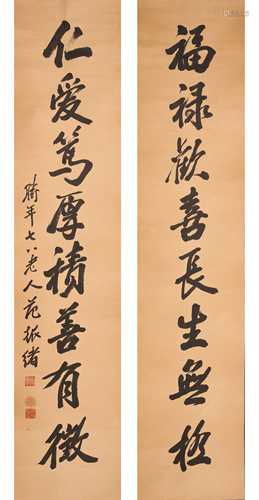 福祿歡喜長生無極
仁爱篤厚積善有徵
時年七八老人范振緒